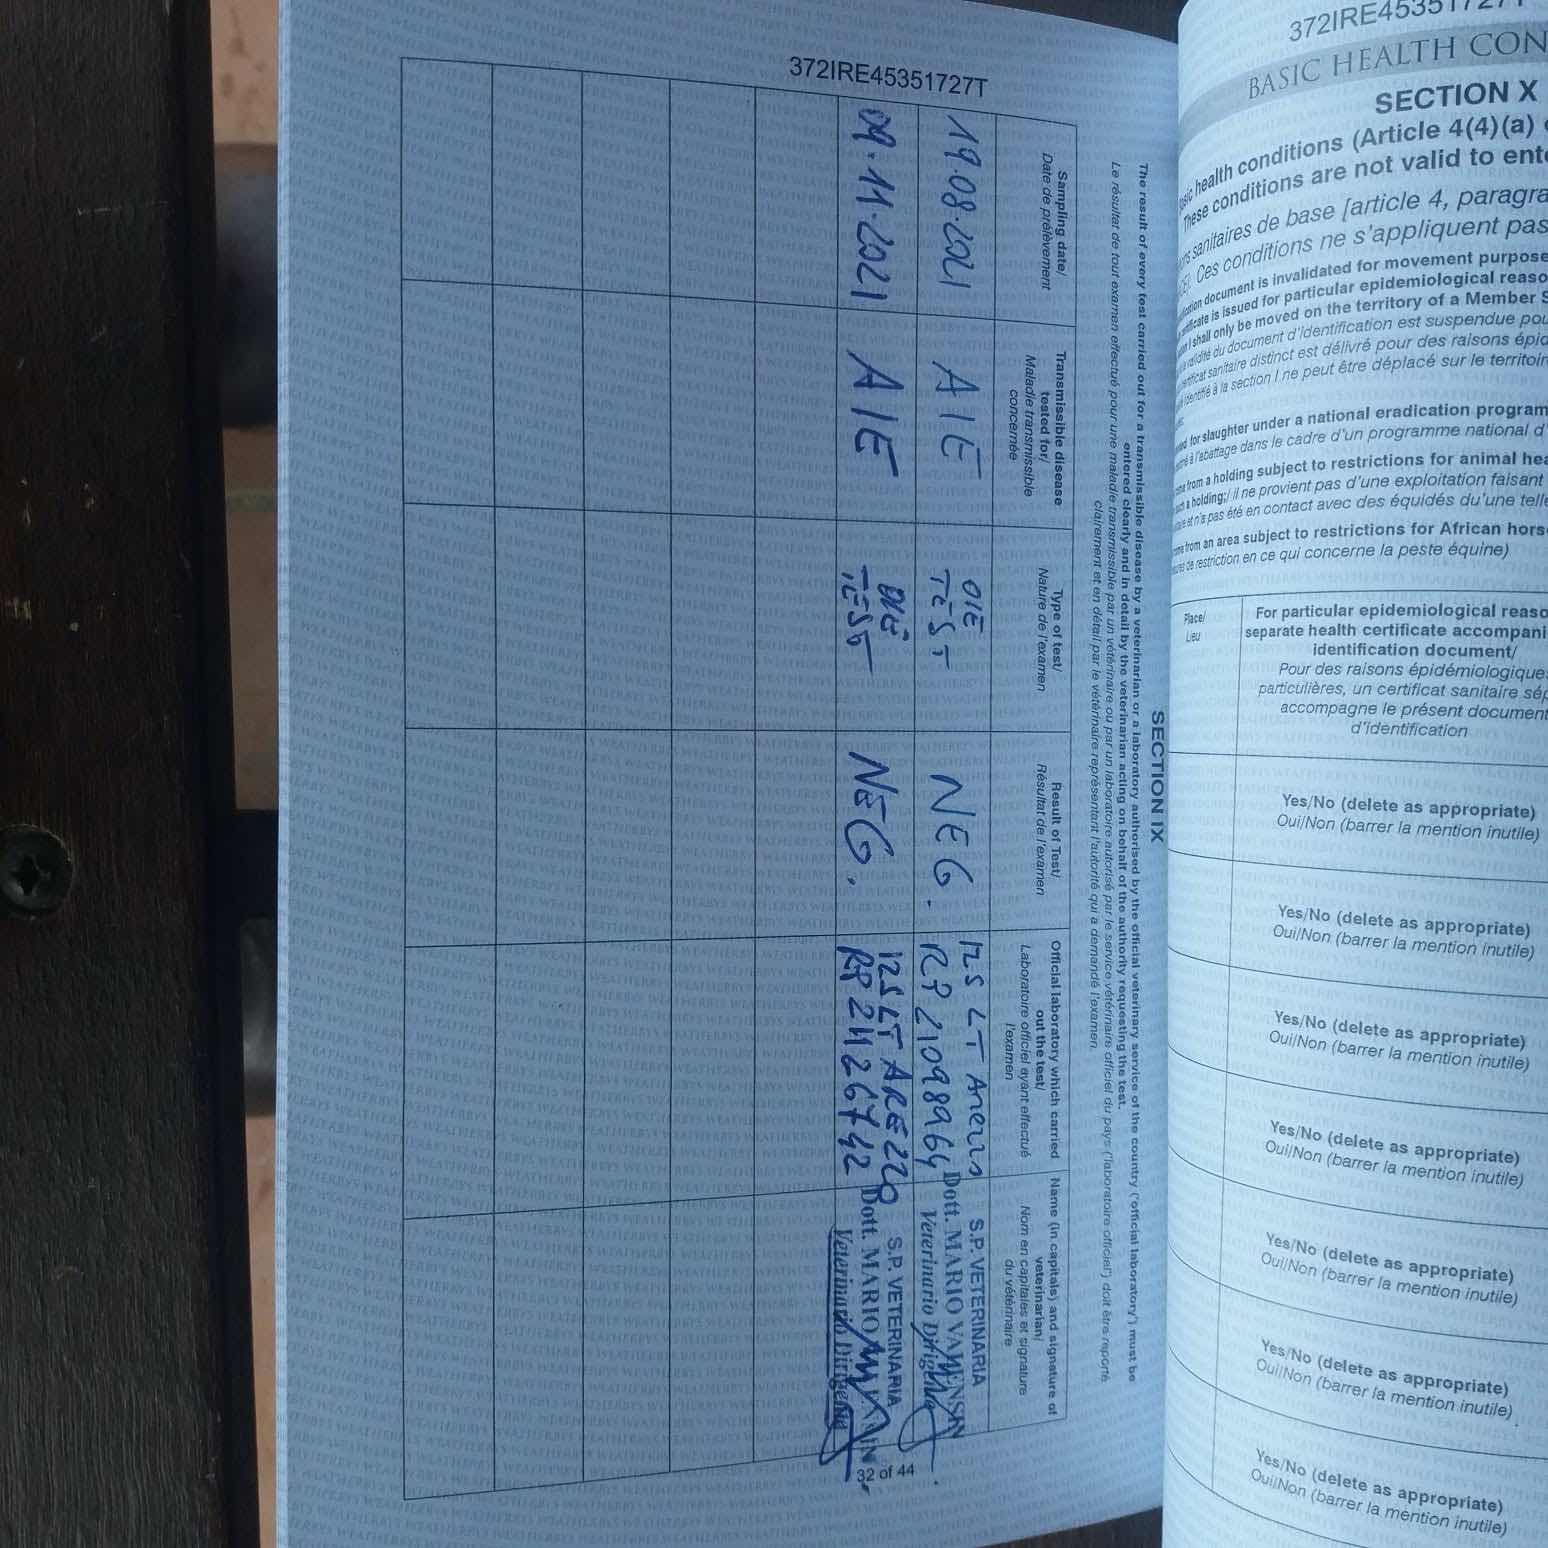 372IRE45351727T
SECTION IX
The result of every test carried out for a transmissible disease by a veterinarian or a laboratory authorised by the official veterinary service of the country ('official laboratory') must be
entered clearly and in detail by the veterinarian acting on behalf of the authority requesting the test.
Le résultat de tout examen effectué pour une maladie transmissible par un vétérinaire ou par un laboratoire autorisé par le service vétérinaire officiel du pays ('laboratoire officiel') doit être reporté
clairement et en détail par le vétérinaire représentant l'autorité qui a demandé l'examen.
Sampling date/
Date de prélèvement
Transmissible disease
tested for/
Maladie transmissible
concernée
Type of test/
Nature de l'examen
Result of Test/
Résultat de l'examen
Official laboratory which carried
out the test/
Laboratoire officiel ayant effectué
l'examen
Name (in capitals) and signature of
veterinarian/
Nom en capitales et signature
du vétérinaire
19.08.2021
AIE
OIE
TEST
NEG.
IZS LT Arezzo
RP 21098964
S.P. VETERINARIA
Dott. MARIO
Veterinario Dirigente
09.11.2021
AIE
OIE
TEST
NEG.
IZS LT AREZZO
RP 21126742
S.P. VETERINARIA
Dott. MARIO
Veterinario Dirigente
32 of 44
372IRE45351727T
BASIC HEALTH CON
SECTION X
health conditions (Article 4(4)(a)
These conditions are not valid to ente
sanitaires de base [article 4, paragra
Ces conditions ne s'appliquent pas
document is invalidated for movement purpose
is issued for particular epidemiological reaso
shall only be moved on the territory of a Member S
du document d'identification est suspendue pou
sanitaire distinct est délivré pour des raisons épid
à la section I ne peut être déplacé sur le territoir
for slaughter under a national eradication program
à l'abattage dans le cadre d'un programme national d'
from a holding subject to restrictions for animal hea
a holding;/ il ne provient pas d'une exploitation faisant
et n'a pas été en contact avec des équidés du'une telle
from an area subject to restrictions for African hors
de restriction en ce qui concerne la peste équine)
Place/
Lieu
For particular epidemiological reaso
separate health certificate accompani
identification document/
Pour des raisons épidémiologiques
particulières, un certificat sanitaire sép
accompagne le présent document
d'identification
Yes/No (delete as appropriate)
Oui/Non (barrer la mention inutile)
Yes/No (delete as appropriate)
Oui/Non (barrer la mention inutile)
Yes/No (delete as appropriate)
Oui/Non (barrer la mention inutile)
Yes/No (delete as appropriate)
Oui/Non (barrer la mention inutile)
Yes/No (delete as appropriate)
Oui/Non (barrer la mention inutile)
Yes/No (delete as appropriate)
Oui/Non (barrer la mention inutile)
Yes/No (delete as appropriate)
Oui/Non (barrer la mention inutile)